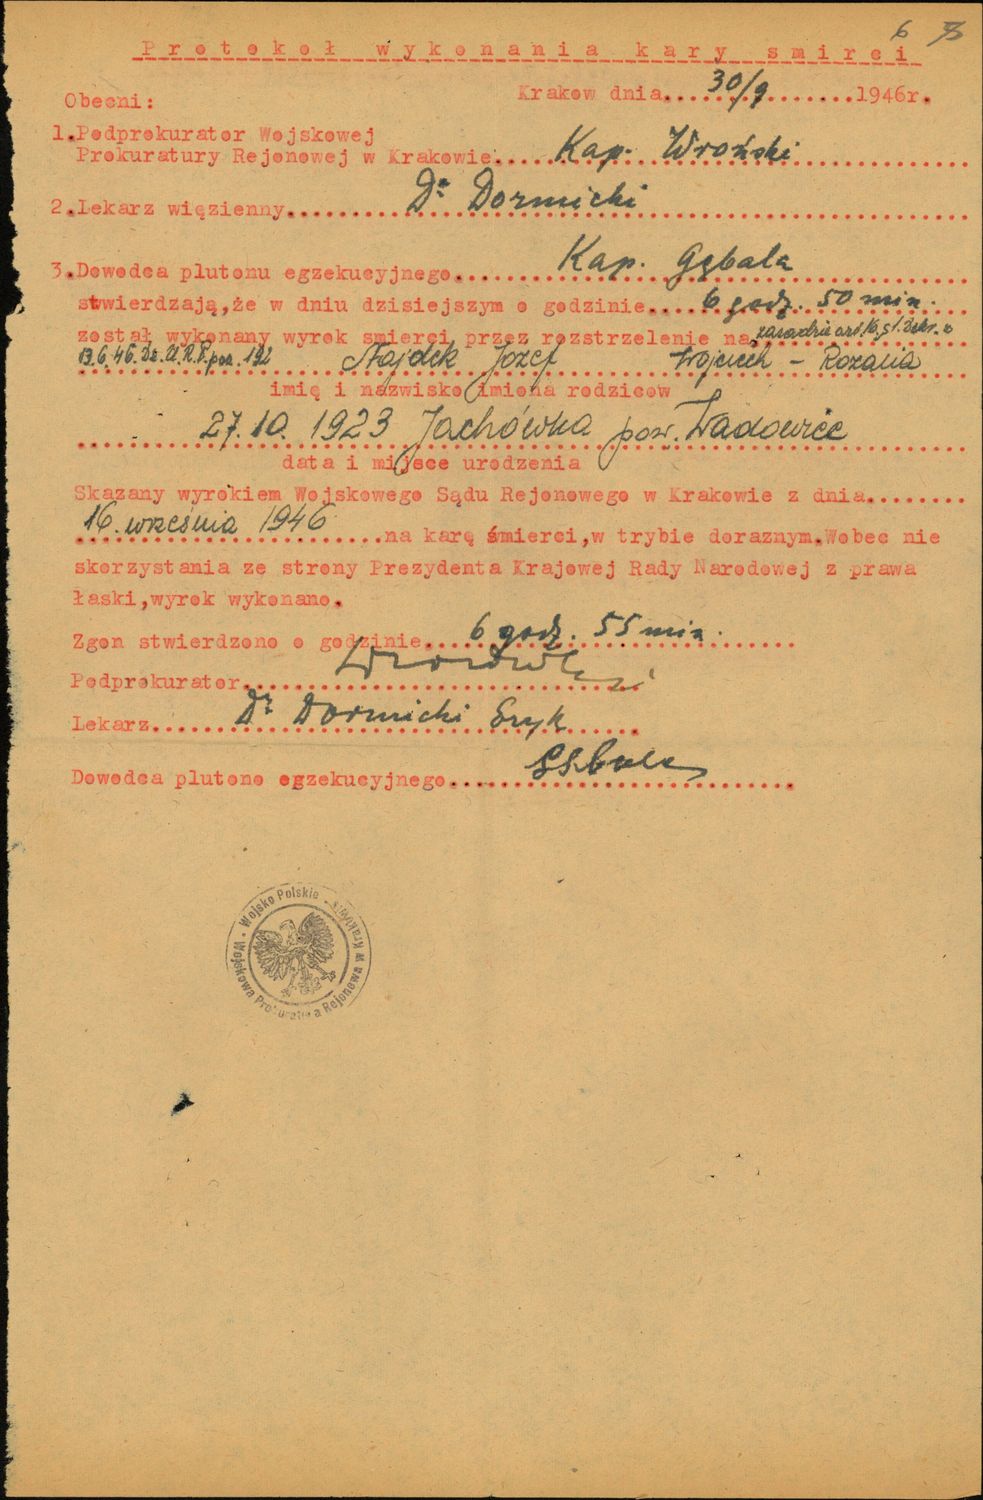 6
P r o t o k o ł   w y k o n a n i a   k a r y   s m i r e i
Obecni:
Krakow dnia....30/9.............1946r.
1.Podprokurator Wojskowej
Prokuratury Rejonowej w Krakowie... Kap. Wroński
2.Lekarz więzienny........ Dr Dormicki
3.Dowodca plutonu egzekucyjnego........ Kap. Gębala
stwierdzają,że w dniu dzisiejszym o godzinie... 6 godz. 50 min.
został wykonany wyrok smierci przez rozstrzelenie na zasadzie art. 16 § 1. Dekr. z
13.6.46. Dz.U.R.P. poz. 192 Najdek Józef Wojciech - Rozalia
imię i nazwisko imiona rodzicow
27.10.1923 Jachówka pow. Wadowice
data i miejsce urodzenia
Skazany wyrokiem Wojskowego Sądu Rejonowego w Krakowie z dnia........
16. września 1946 ....na karę śmierci,w trybie doraznym.Wobec nie
skorzystania ze strony Prezydenta Krajowej Rady Narodowej z prawa
łaski,wyrok wykonano.
Zgon stwierdzono o godzinie... 6 godz. 55 min.
Podprokurator........
Lekarz........ Dr Dormicki Eryk
Dowodca plutono egzekucyjnego........ Gębala
Wojsko Polskie - Wojskowa Prokuratura Rejonowa w Krakowie